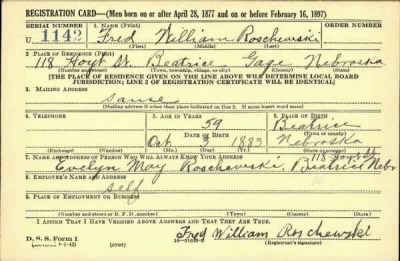 REGISTRATION CARD—(Men born on or after April 28, 1877 and on or before February 16, 1897)
SERIAL NUMBER 1. NAME (Print) ORDER NUMBER
U 1142 Fred William Roschewski
(First) (Middle) (Last)
2. PLACE OF RESIDENCE (Print)
118 Hoyt St. Beatrice Gage Nebraska
(Number and street) (Town, township, village, or city) (County) (State)
[THE PLACE OF RESIDENCE GIVEN ON THE LINE ABOVE WILL DETERMINE LOCAL BOARD
JURISDICTION; LINE 2 OF REGISTRATION CERTIFICATE WILL BE IDENTICAL]
3. MAILING ADDRESS
Same
[Mailing address if other than place indicated on line 2. If same insert word same]
4. TELEPHONE 5. AGE IN YEARS 6. PLACE OF BIRTH
59 Beatrice
DATE OF BIRTH (Town or county)
Oct 1882 Nebraska
(Exchange) (Number) (Mo.) (Day) (Yr.) (State or country)
7. NAME AND ADDRESS OF PERSON WHO WILL ALWAYS KNOW YOUR ADDRESS 118 Hoyt St
Evelyn May Roschewski, Beatrice Nebr
8. EMPLOYER'S NAME AND ADDRESS
self
9. PLACE OF EMPLOYMENT OR BUSINESS
(Number and street or R. F. D. number) (Town) (County) (State)
I AFFIRM THAT I HAVE VERIFIED ABOVE ANSWERS AND THAT THEY ARE TRUE.
D. S. S. Form 1 Fred William Roschewski
(Revised 4-1-42) (over) (Registrant's signature)